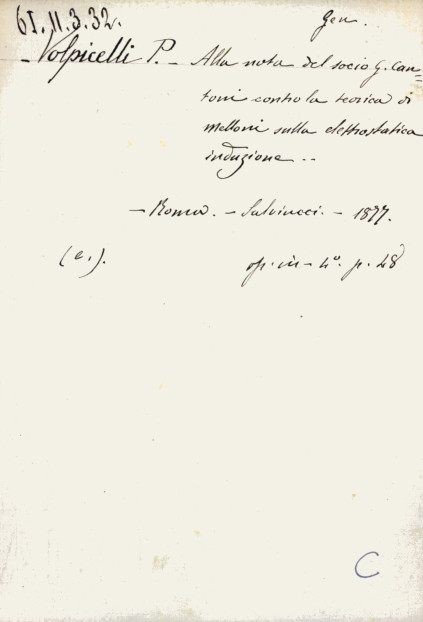 61.11.3.32.
Gen.
Volpicelli P. - Alla nota del socio G. Can=
toni contro la teorica di
Melloni sulla elettrostatica
induzione --
- Roma. - Salviucci. - 1877.
(e,).
op. in - 4°. p. 48
C